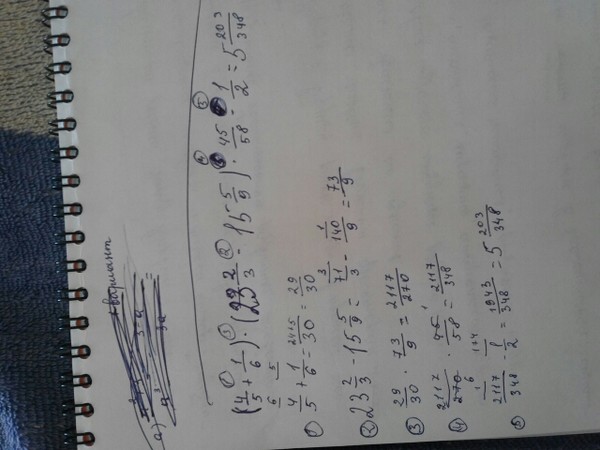 вариант
а)
(4/5 + 1/6) · (23 2/3 - 15 5/9) · 45/58 - 1/2 = 5 203/348
① 4/5 + 1/6 = 24+5/30 = 29/30
② 23 2/3 - 15 5/9 = 71/3 - 140/9 = 73/9
③ 29/30 · 73/9 = 2117/270
④ 2117/270 · 45/58 = 2117/348
⑤ 2117/348 - 1/2 = 1943/348 = 5 203/348